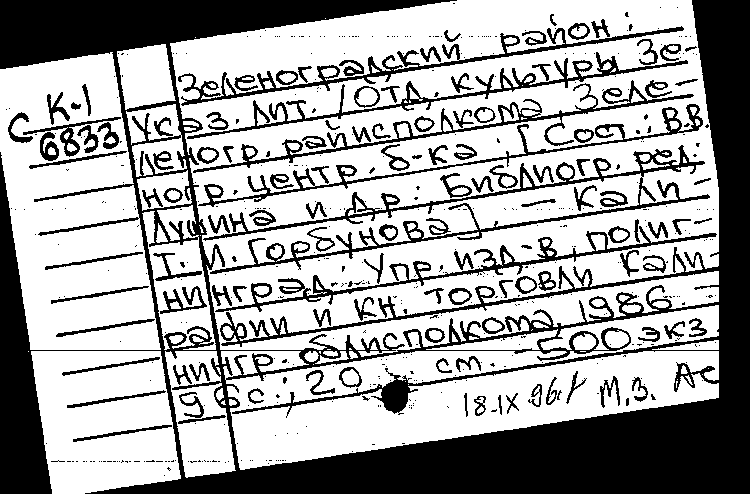 Зеленоградский район :
С К-1
6833
Указ. лит. / Отд. культуры Зе-
леногр. райисполкома, Зеле-
ногр. центр. б-ка ; [Сост.: В.В.
Лушина и др.; Библиогр. ред.
Т. И. Горбунова]. — Кали-
нинград: Упр. изд-в, полиг-
рафии и кн. торговли Кали-
нингр. облисполкома, 1986. —
96 с.; 20 см. — 500 экз.
18-IX 96 М.З.